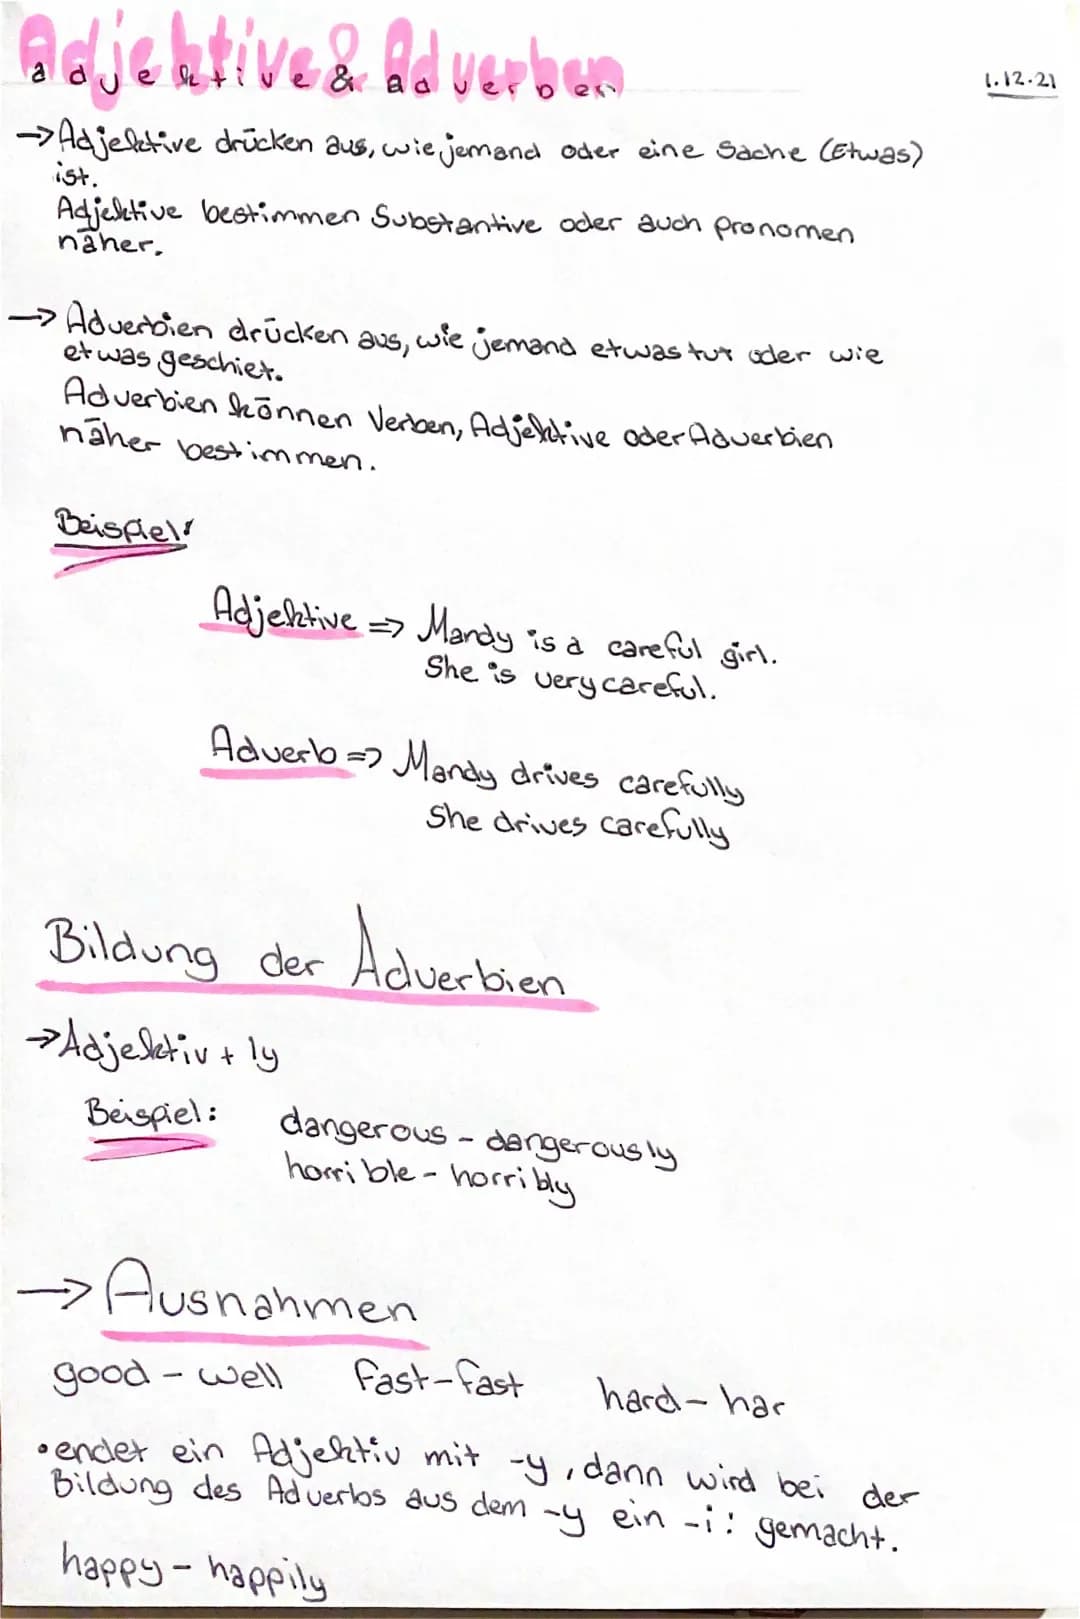 Adjektive & Adverben
adjektive & adverben
1.12.21
→ Adjektive drücken aus, wie jemand oder eine Sache (Etwas)
ist.
Adjektive bestimmen Substantive oder auch pronomen
näher.
→ Adverbien drücken aus, wie jemand etwas tut oder wie
etwas geschiet.
Adverbien können Verben, Adjektive oder Adverbien
näher bestimmen.
Beispiel:
Adjektive => Mandy is a careful girl.
She is very careful.
Adverb => Mandy drives carefully
She drives carefully
Bildung der Adverbien
→ Adjektiv + ly
Beispiel: dangerous - dangerously
horrible - horribly
→ Ausnahmen
good - well fast - fast hard - har
• endet ein Adjektiv mit -y, dann wird bei der
Bildung des Adverbs aus dem -y ein -i: gemacht.
happy - happily